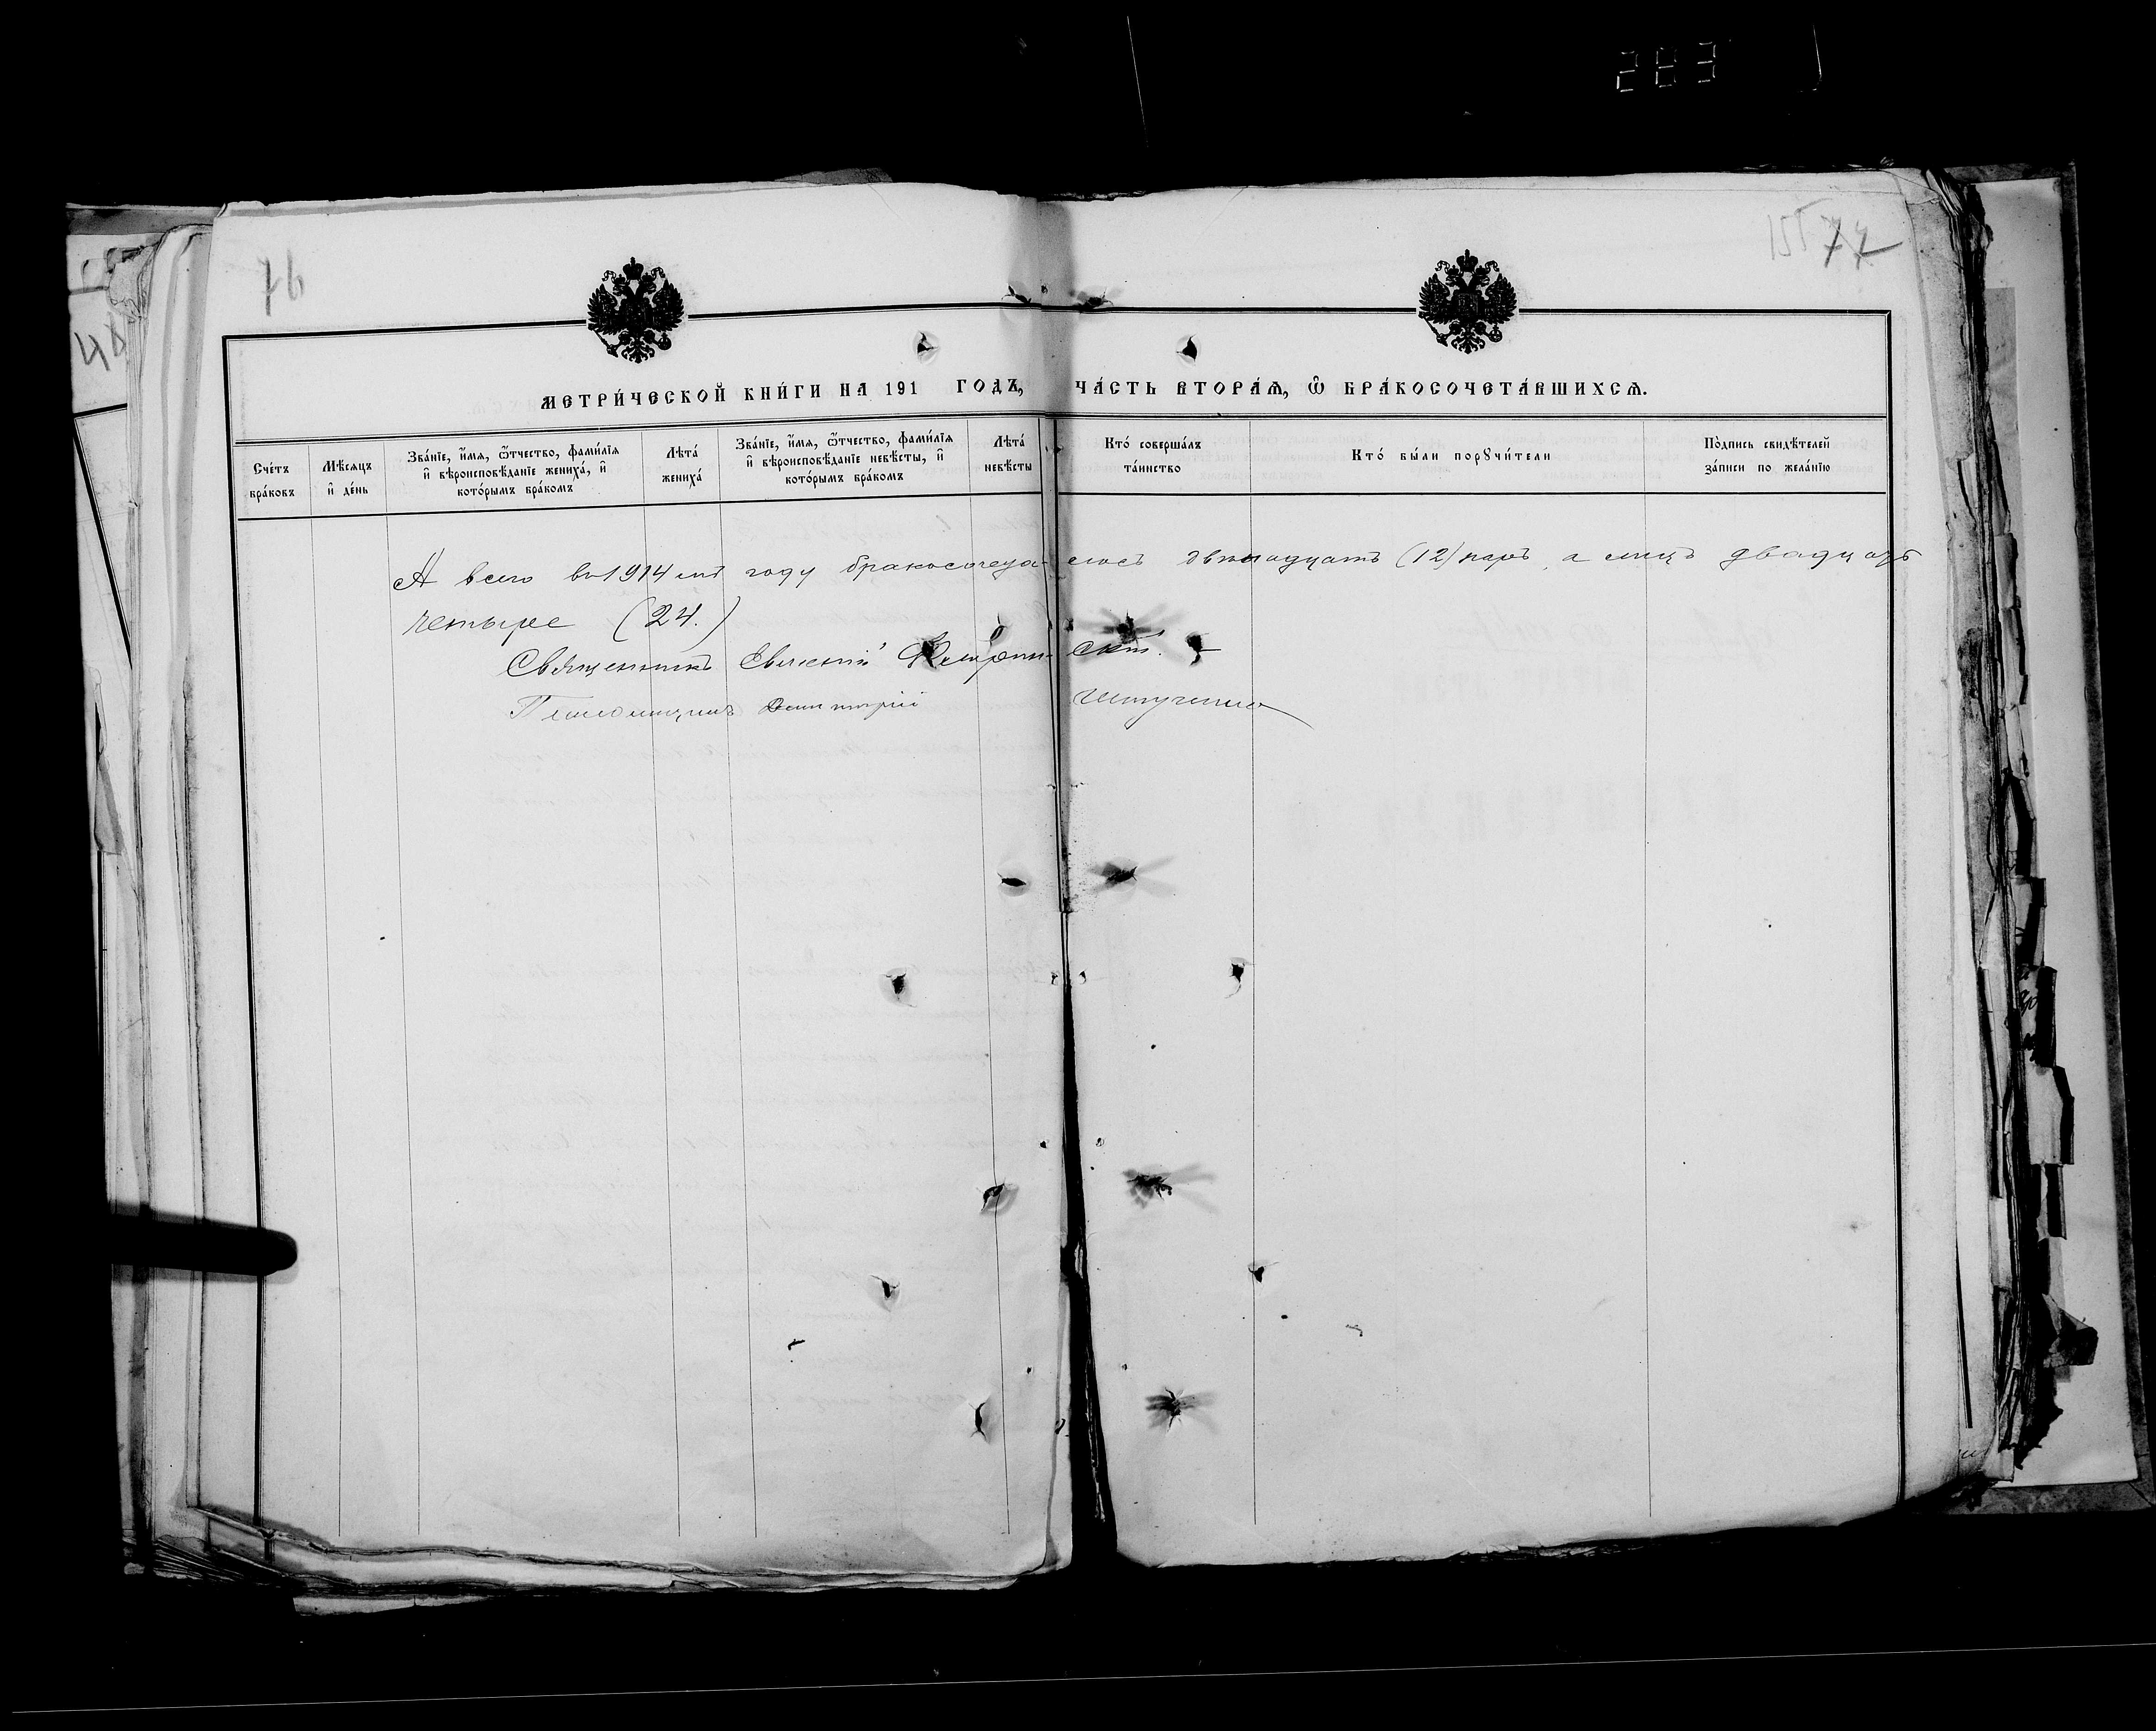 283
76
155 77
МЕТРИ́ЧЕСКОЙ КНИ́ГИ НА 191 ГОДЪ, ЧА́СТЬ ВТОРА́Ѧ, Ѽ БРА́КОСОЧЕТА́ВШИХСѦ.
Сче́тъ бра́ковъ
Мѣ́сяцъ и҆ де́нь
Зва́нїе, и҆́мя, ѻ҆́тчество, фами́лїя и҆ вѣроисповѣ́данїе жениха́, и҆ кото́рымъ бра́комъ
Лѣта́ жениха́
Зва́нїе, и҆́мя, ѻ҆́тчество, фами́лїя и҆ вѣроисповѣ́данїе невѣ́сты, и҆ кото́рымъ бра́комъ
Лѣта́ невѣ́сты
Кто́ соверша́лъ та́инство
Кто́ бы́ли порꙋчи́тели
По́дпись свидѣ́телей за́писи по жела́нїю
А всего въ 1914 мъ году бракосочета-лось двѣнадцать (12) паръ, а лицъ двадцать
четыре (24.)
Священникъ Евгений
Псаломщикъ Димитрій